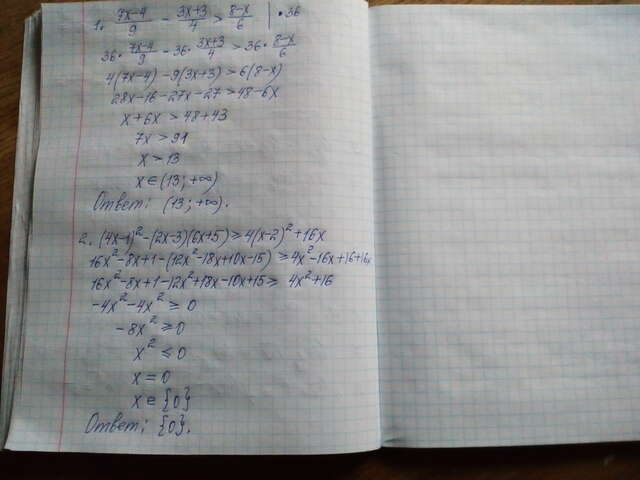 1. (7x-4)/9 - (3x+3)/4 > (8-x)/6 | •36
36• (7x-4)/9 - 36• (3x+3)/4 > 36• (8-x)/6
4(7x-4) -9(3x+3) > 6(8-x)
28x-16-27x-27 > 48-6x
x+6x > 48+43
7x > 91
x > 13
x∈(13; +∞)
Ответ: (13; +∞).
2. (4x-1)²-(2x-3)(6x+5) ≥ 4(x-2)²+16x
16x²-8x+1-(12x²-18x+10x-15) ≥ 4x²-16x+16+16x
16x²-8x+1-12x²+18x-10x+15 ≥ 4x²+16
-4x²-4x² ≥ 0
-8x² ≥ 0
x² ≤ 0
x = 0
x ∈ {0}
Ответ: {0}.